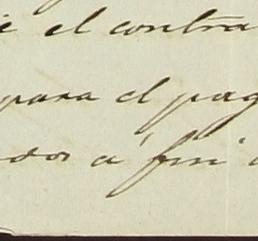 e el contra
para el pag
dos a fin